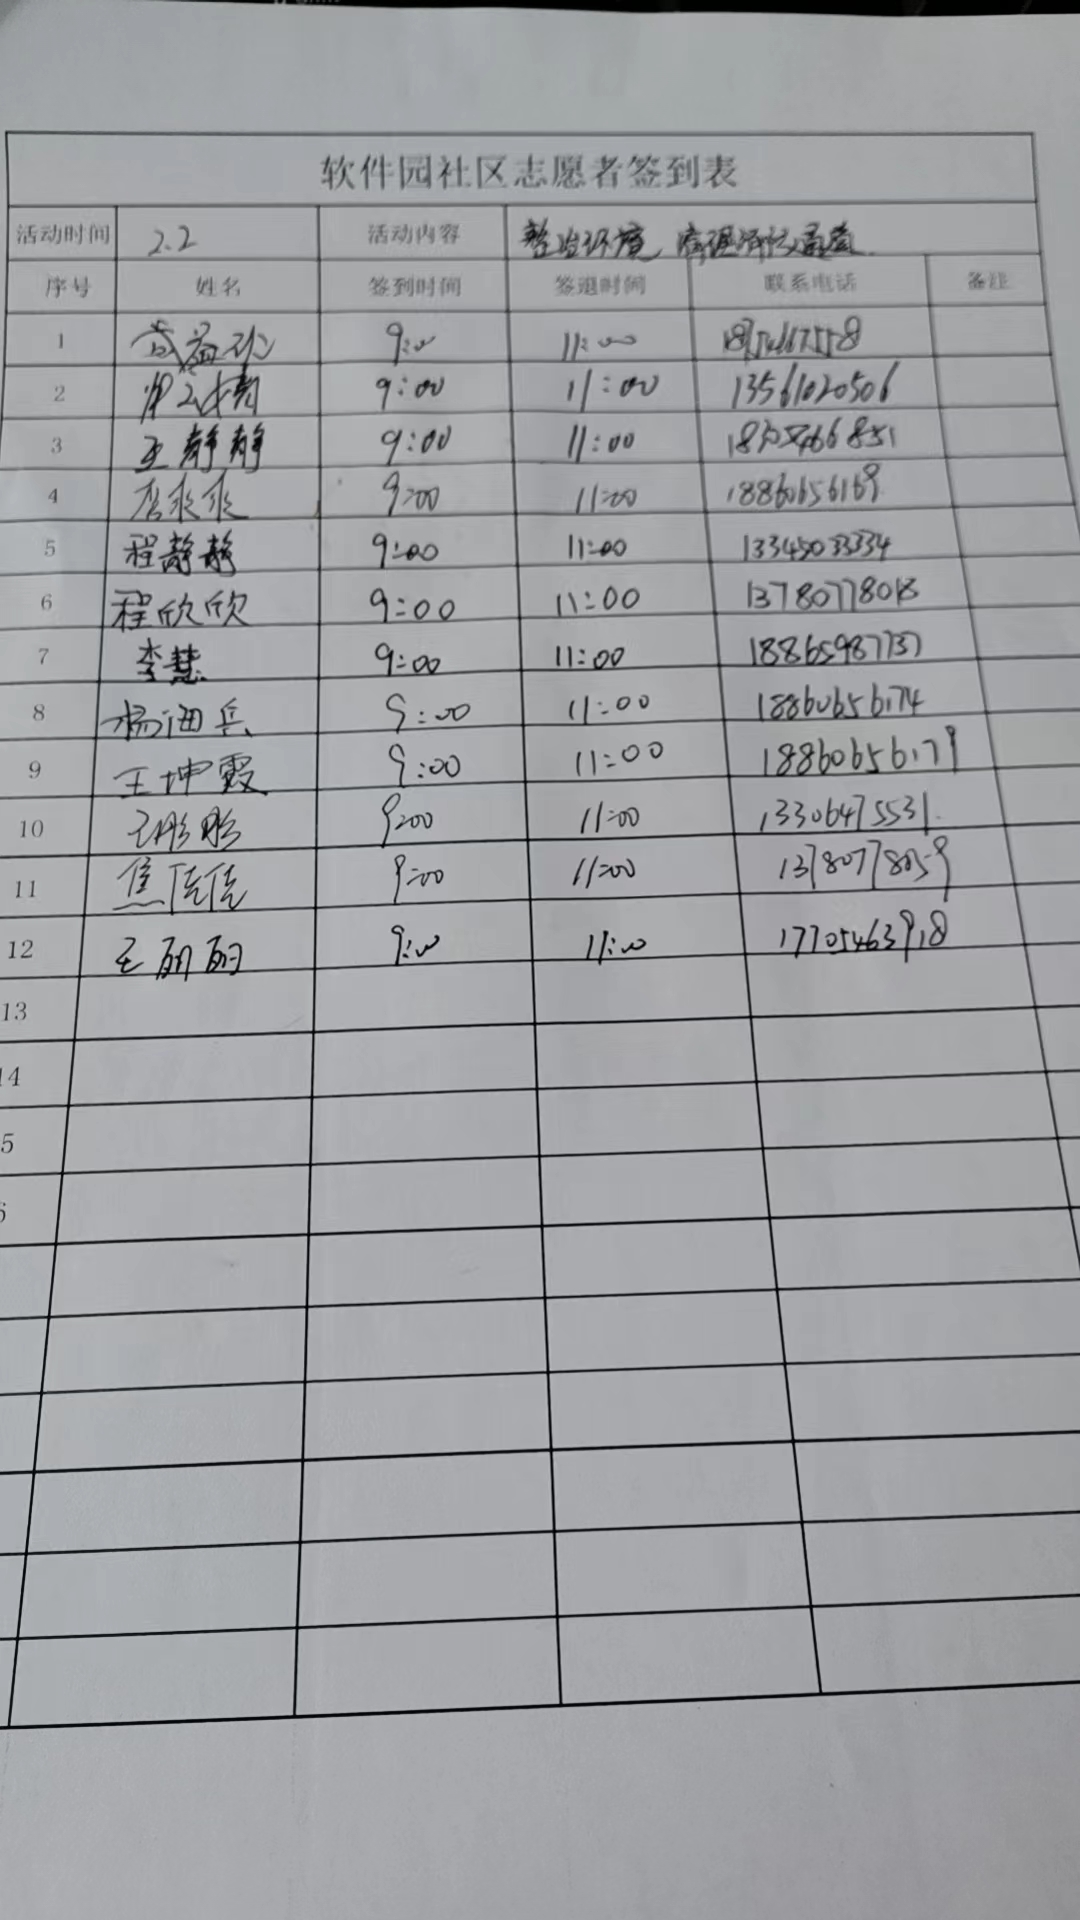 软件园社区志愿者签到表
活动时间 2.2 活动内容 整治环境
序号 姓名 签到时间 签退时间 联系电话 备注
1 9:00 11:00
2 9:00 11:00 13561020506
3 王静静 9:00 11:00
4 9:00 11:00 18860656169
5 程静静 9:00 11:00
6 程欣欣 9:00 11:00 13780778018
7 李慧 9:00 11:00 18865987737
8 杨海兵 9:00 11:00 18860656174
9 王坤霞 9:00 11:00 18860656179
10 王彤彤 9:00 11:00 13306475531
11 焦佳佳 9:00 11:00 13780778059
12 王丽丽 9:00 11:00 17705463918
13
14
5
6